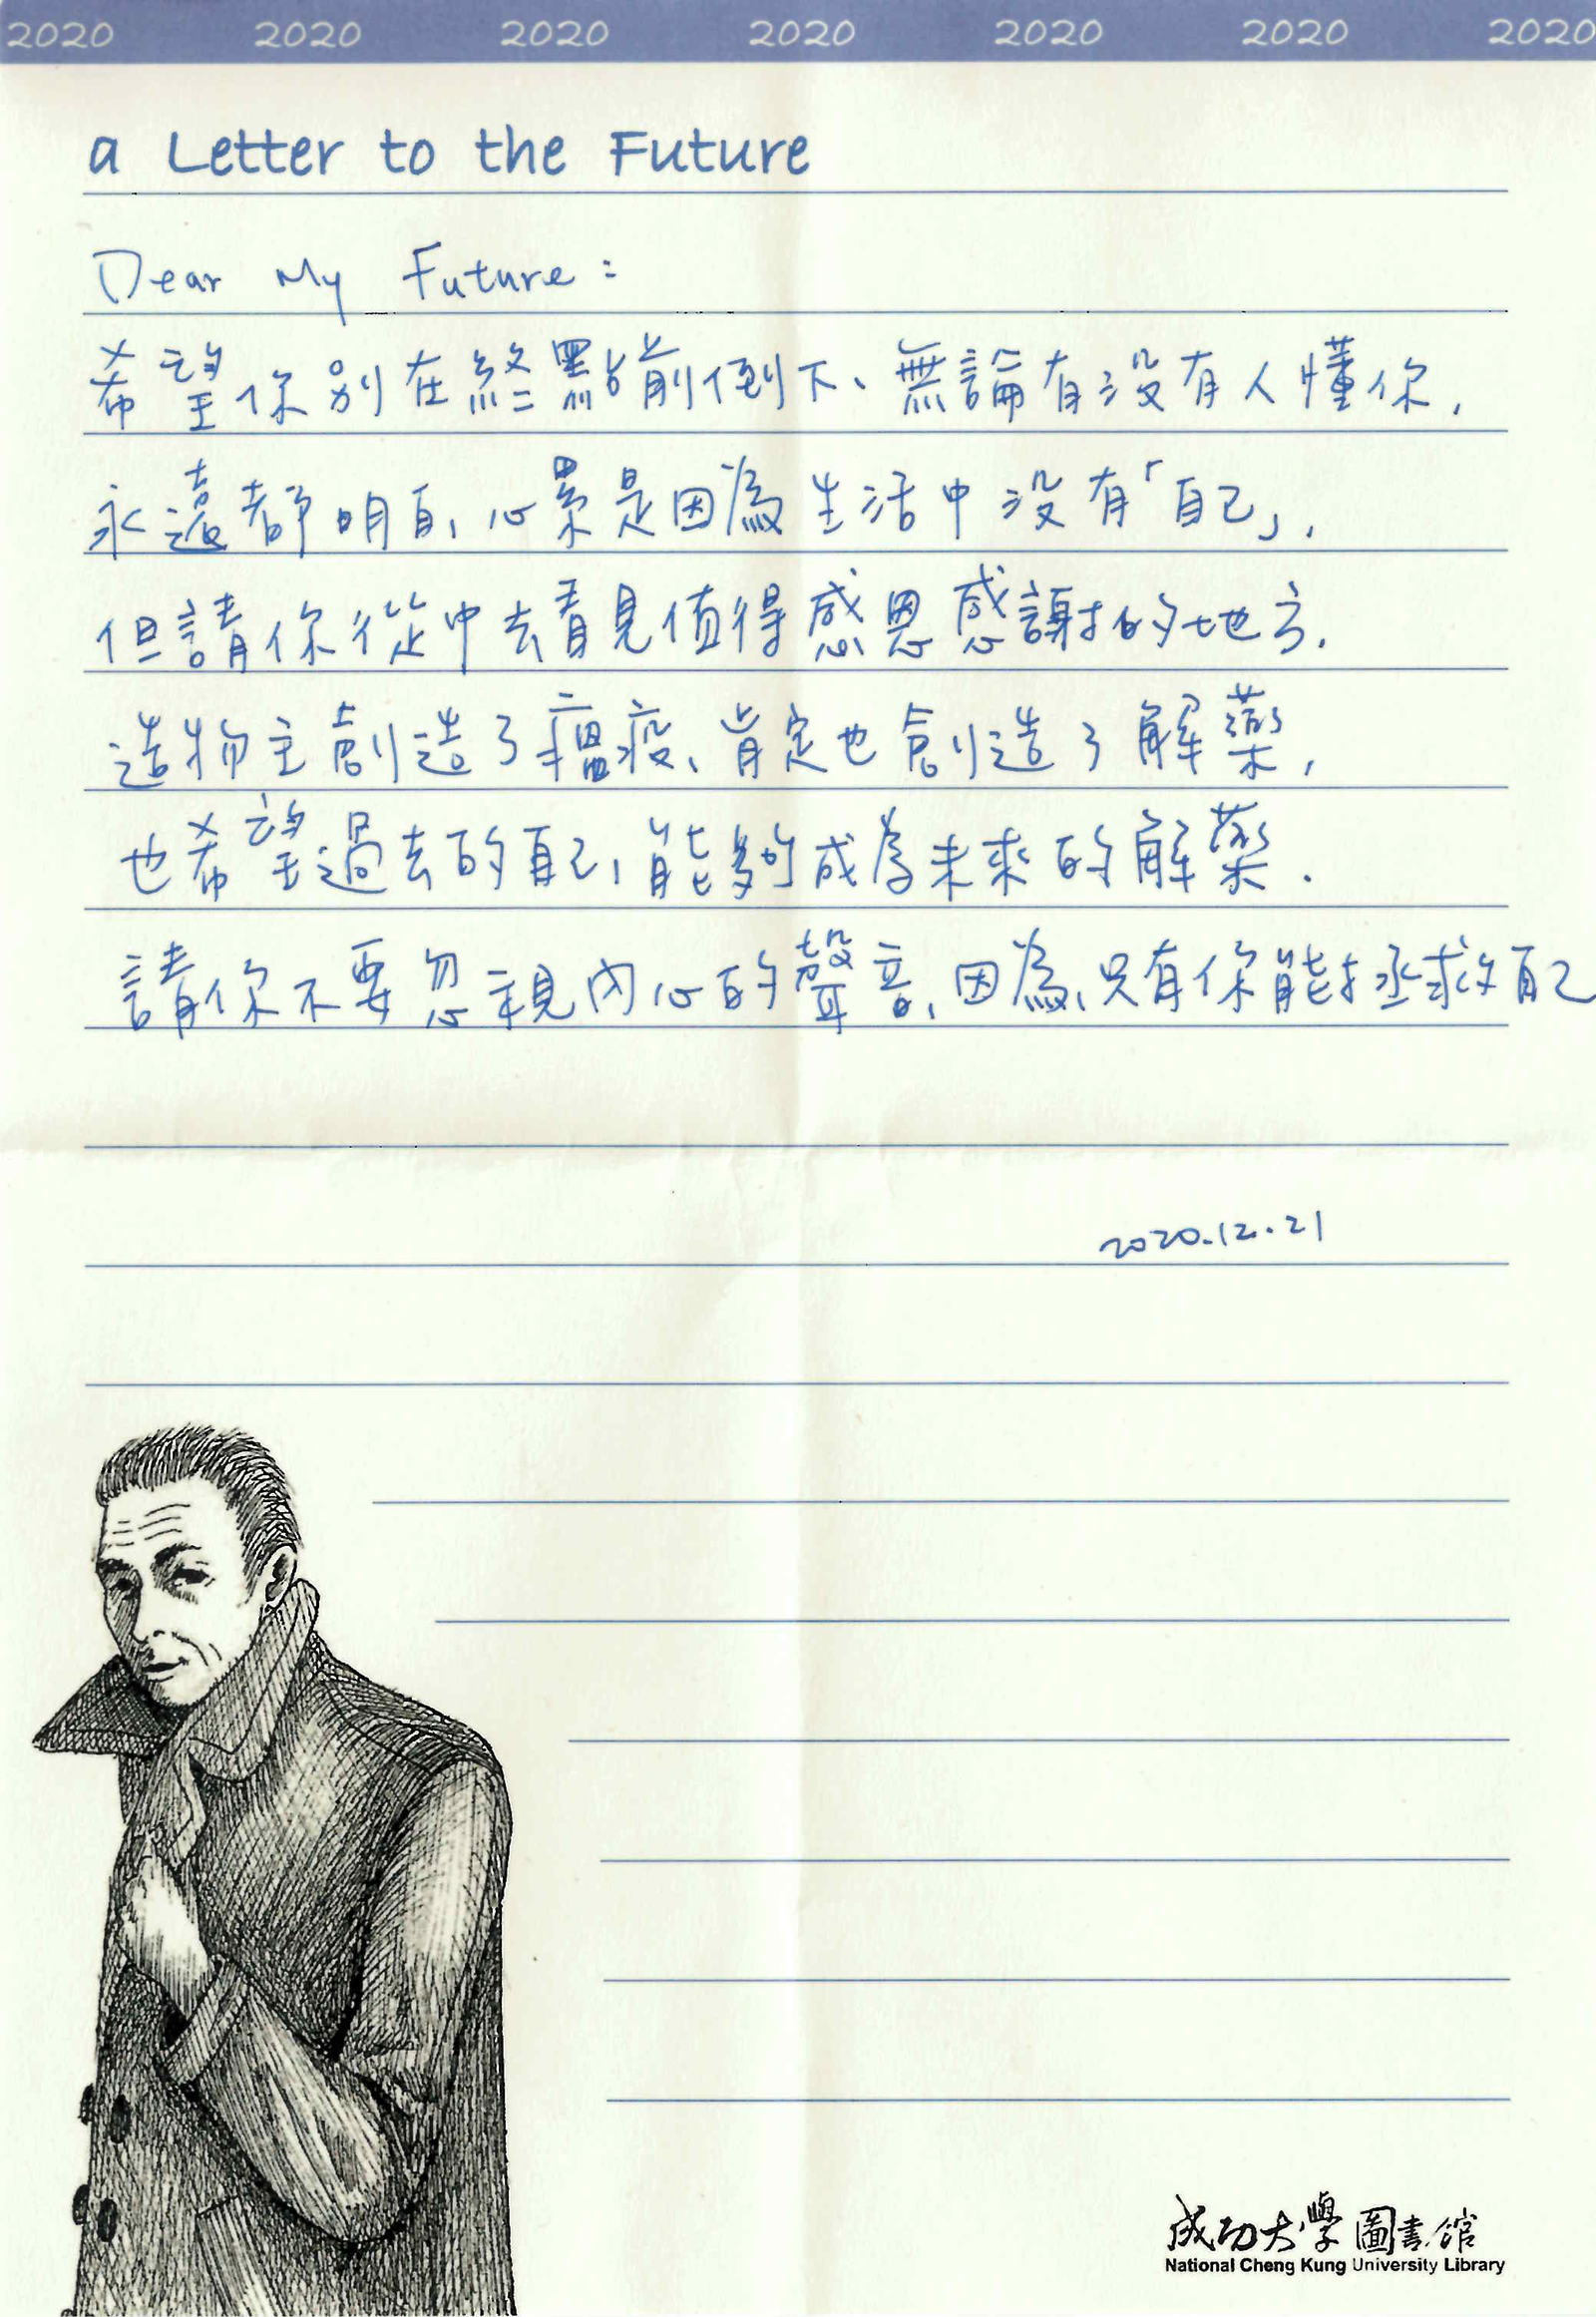 2020 2020 2020 2020 2020 2020 2020
a Letter to the Future
Dear My Future:
希望你別在終點前倒下、無論有沒有人懂你,
永遠都明白,心累是因為生活中沒有「自己」,
但請你從中去看見值得感恩感謝的地方.
造物主創造了瘟疫、肯定也創造了解藥,
也希望過去的自己,能夠成為未來的解藥.
請你不要忽視內心的聲音,因為,只有你能拯救自己
2020.12.21
成功大學圖書館
National Cheng Kung University Library